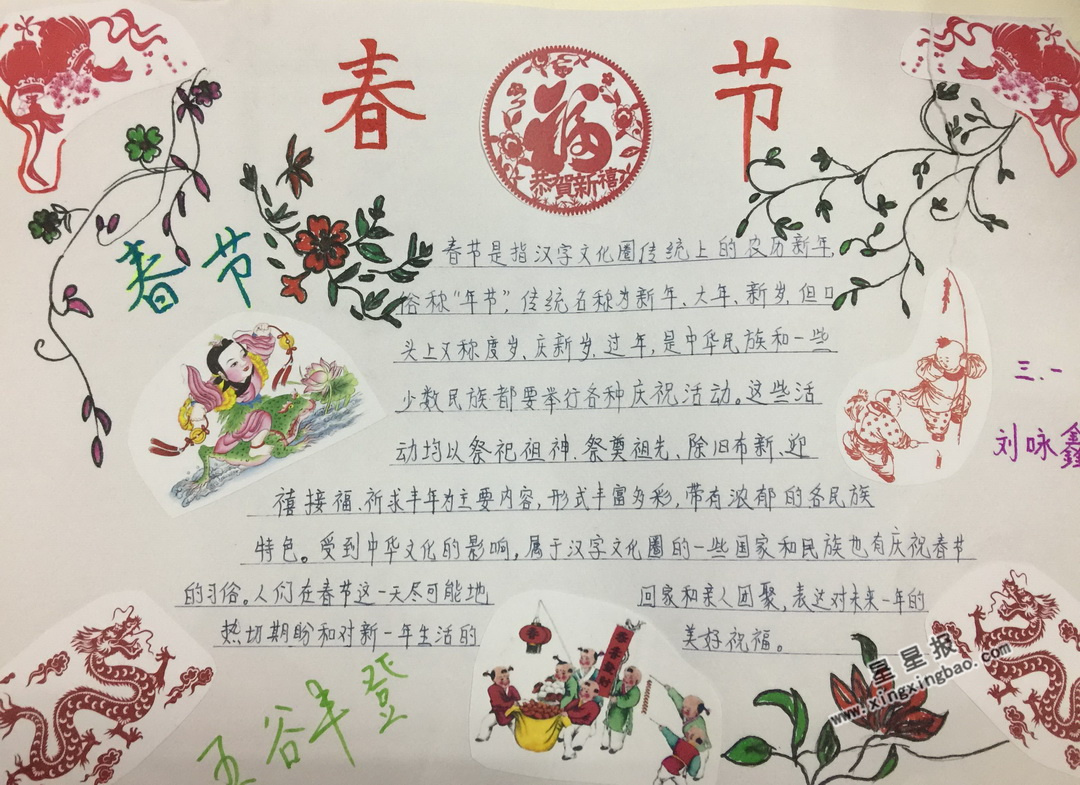 春 节
恭賀新禧
春节
春节是指汉字文化圈传统上的农历新年,
俗称“年节”,传统名称为新年、大年、新岁,但口
头上又称度岁、庆新岁、过年,是中华民族和一些
少数民族都要举行各种庆祝活动。这些活
动均以祭祀祖神、祭奠祖先、除旧布新、迎
禧接福、祈求丰年为主要内容,形式丰富多彩,带有浓郁的各民族
特色。受到中华文化的影响,属于汉字文化圈的一些国家和民族也有庆祝春节
的习俗。人们在春节这一天尽可能地 回家和亲人团聚,表达对未来一年的
热切期盼和对新一年生活的 美好祝福。
三.一
刘咏鑫
五谷丰登
春
恭喜發財
星星报
www.xingxingbao.com